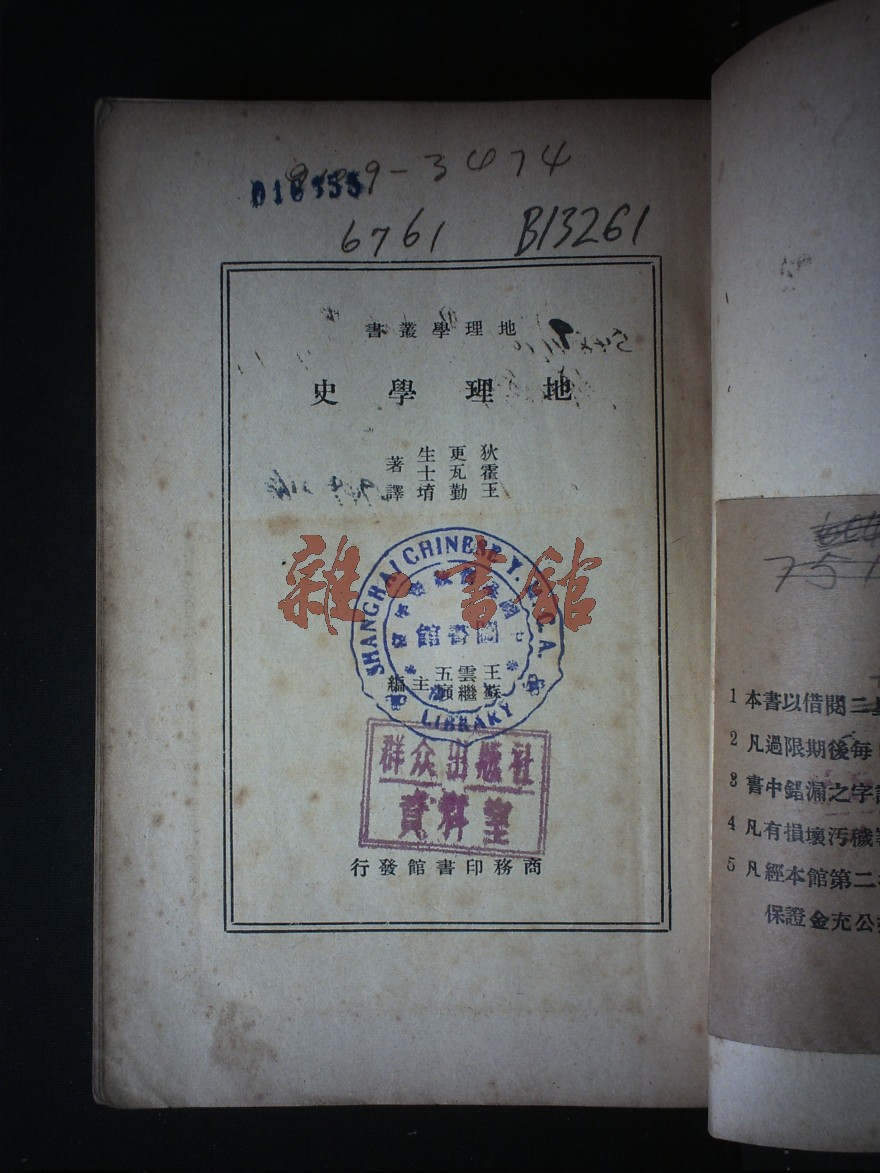 016555
6761 B13261
地理學叢書
地理學史
狄更生
霍瓦士著
王勤堉譯
雜·書館
SHANGHAI CHINESE Y.M.C.A.
圖書館
LIBRARY
王雲五
蘇繼廎
主編
群众出版社
資料室
商務印書館發行
751
1 本書以借閱二
2 凡過限期後每
3 書中錯漏之字
4 凡有損壞汚穢
5 凡經本館第二
保證金充公